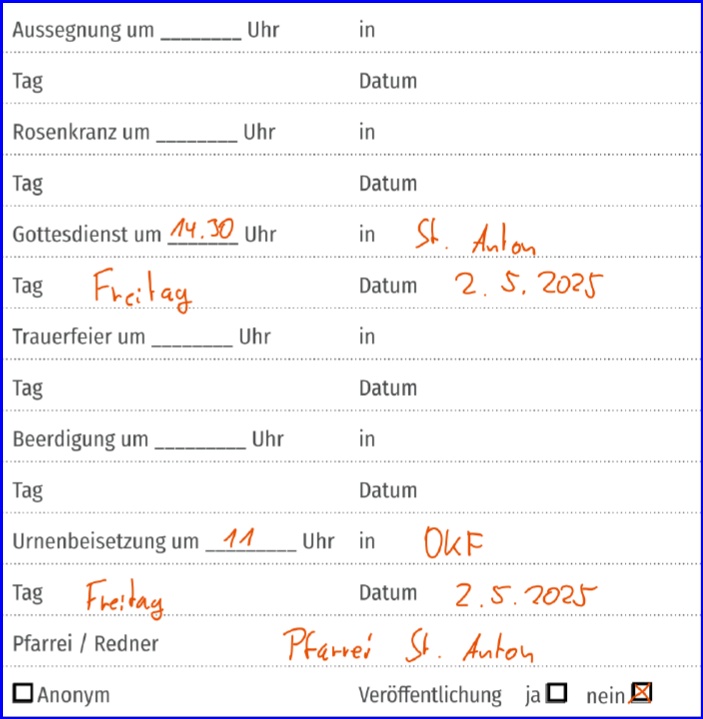 Aussegnung um ________ Uhr in
Tag Datum
Rosenkranz um ________ Uhr in
Tag Datum
Gottesdienst um 14.30 Uhr in St. Anton
Tag Freitag Datum 2.5.2025
Trauerfeier um ________ Uhr in
Tag Datum
Beerdigung um _________ Uhr in
Tag Datum
Urnenbeisetzung um 11 Uhr in OKF
Tag Freitag Datum 2.5.2025
Pfarrei / Redner Pfarrei St. Anton
☐ Anonym Veröffentlichung ja ☐ nein ☒